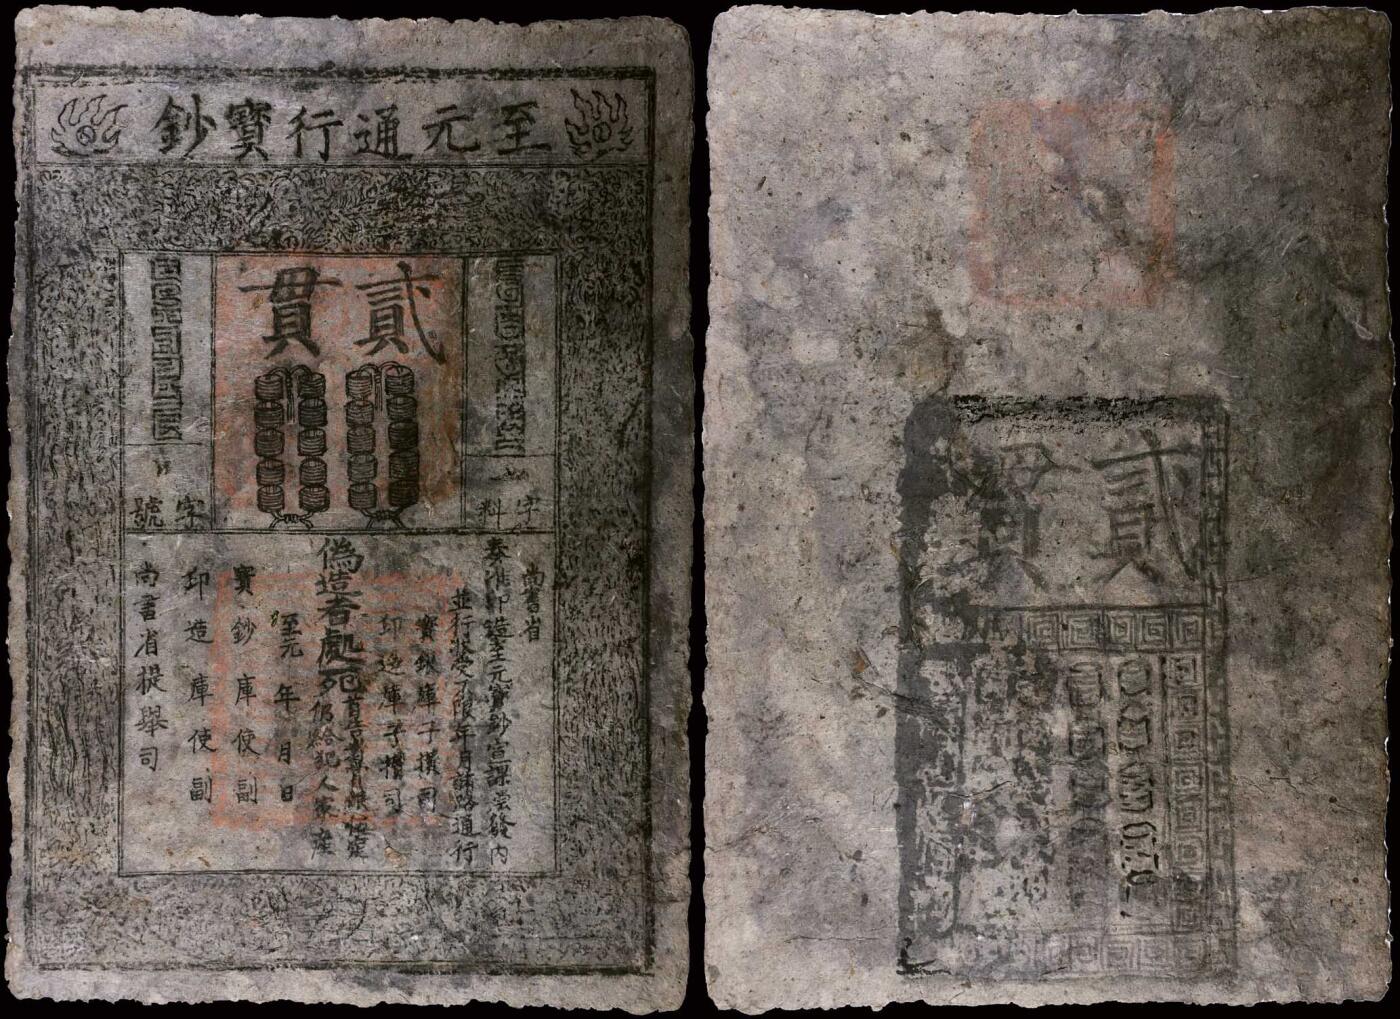 至元通行寶鈔
貳貫
字料
字號
尚書省
奏准印造至元寶鈔宣課差發內
並行收受不限年月諸路通行
寶鈔庫子攢司
印造庫子攢司
偽造者處死
首告者賞銀伍錠
仍給犯人家產
至元 年 月 日
寶鈔庫使副
印造庫使副
尚書省提舉司
貳貫